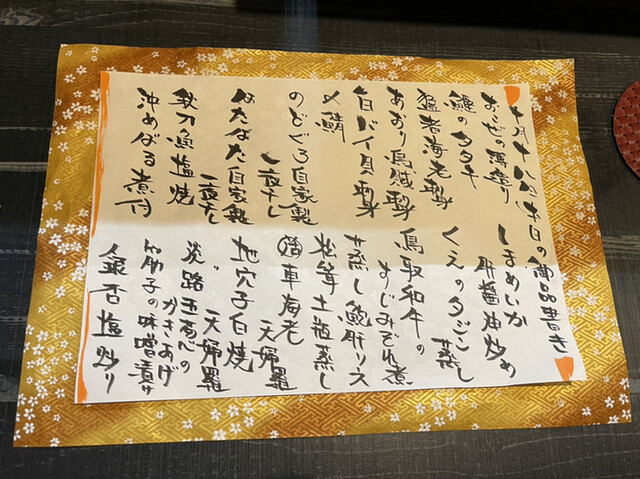 十月十八日 本日の商品書き
おこぜの薄造り
鰹のタタキ
猛者海老刺身
あおり烏賊刺身
白バイ貝刺身
〆鯖
のどぐろ自家製
一夜干し
はたはた自家製
一夜干し
秋刀魚塩焼
沖めばる煮付
しまめいか
肝醤油炒め
くえのタジン蒸し
鳥取和牛の
すじみぞれ煮
蒸し鮑肝ソース
松茸土瓶蒸し
活車海老
天婦羅
地穴子白焼
〃 天婦羅
淡路玉葱の
かきあげ
筋子の味噌漬け
銀杏塩炒り